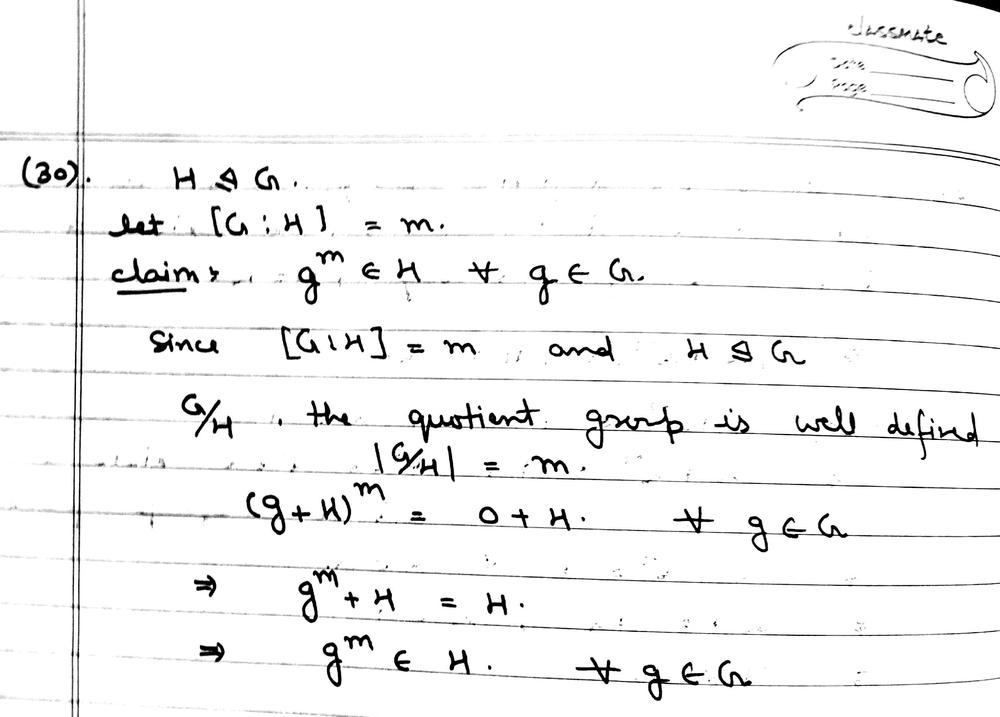 classmate
Date
Page
(30). H ⊴ G.
let [G : H] = m.
claim: g^m ∈ H ∀ g ∈ G.
Since [G : H] = m, and H ⊴ G
G/H, the quotient group is well defined
|G/H| = m.
(g + H)^m = 0 + H. ∀ g ∈ G
⇒ g^m + H = H.
⇒ g^m ∈ H. ∀ g ∈ G